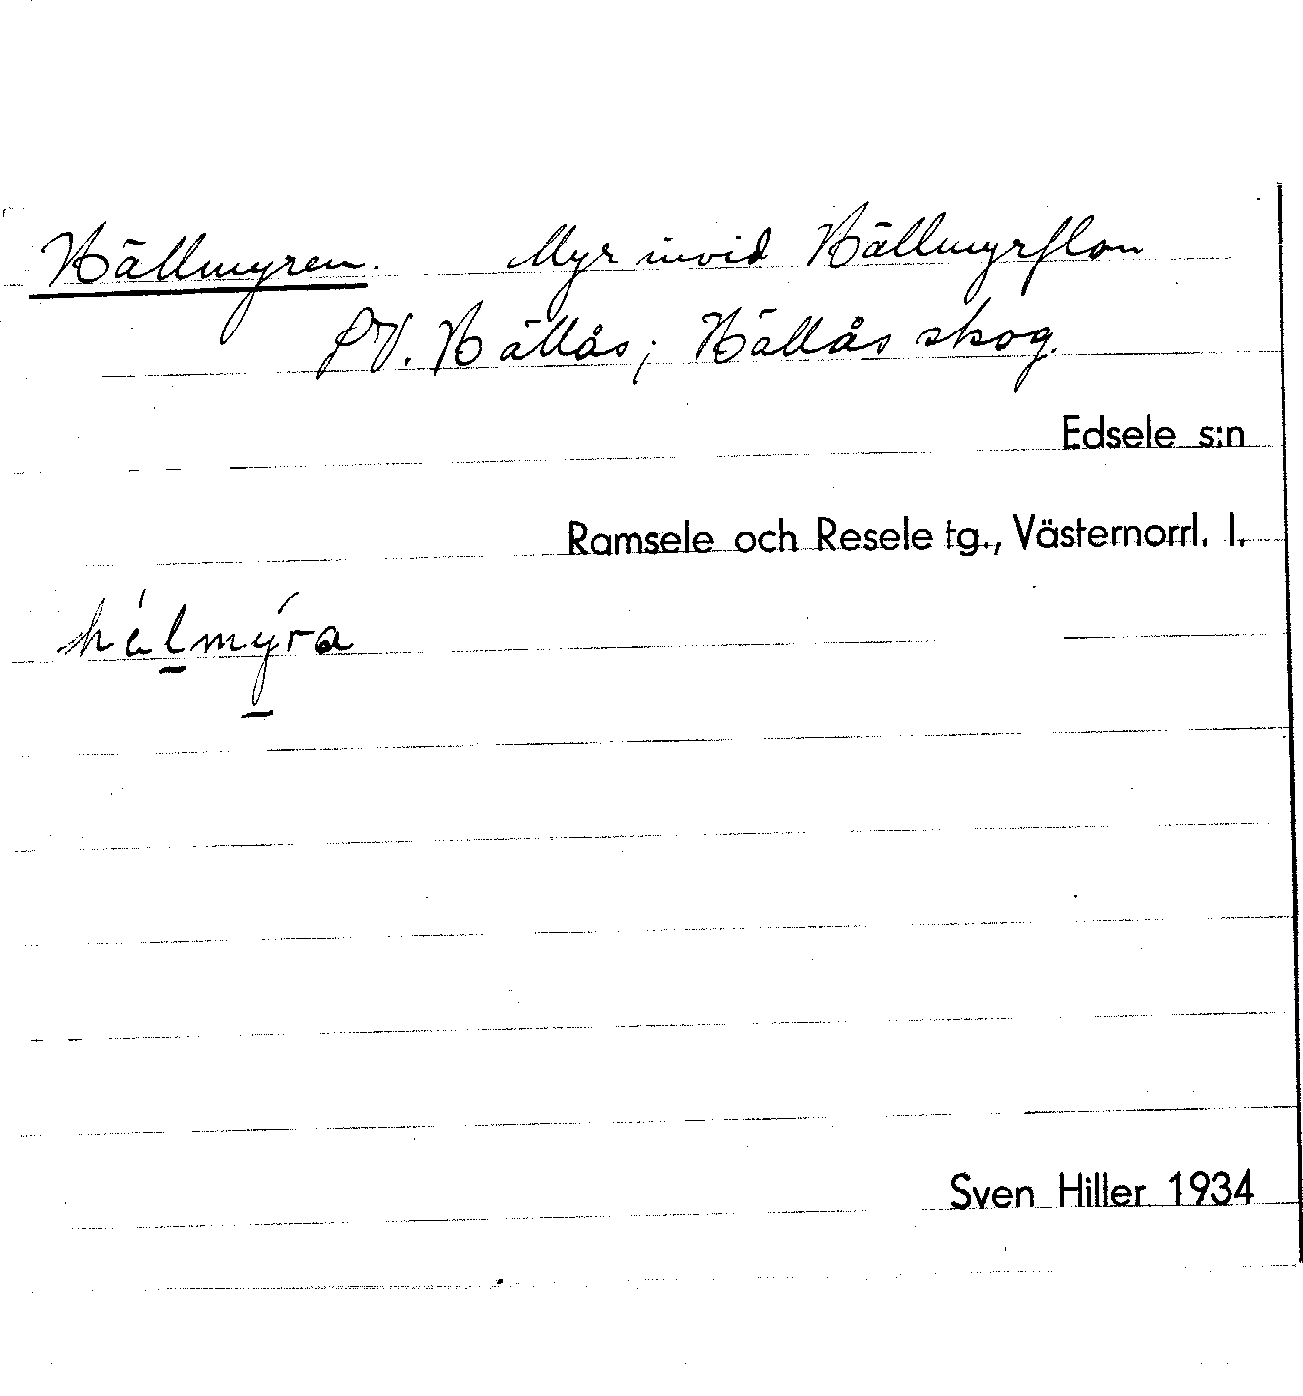 Hällmyren. Myr invid Hällmyrflon
SV. Hällås; Hällås skog.
Edsele s:n
Ramsele och Resele tg., Västernorrl. l.
hálmýra
Sven Hiller 1934